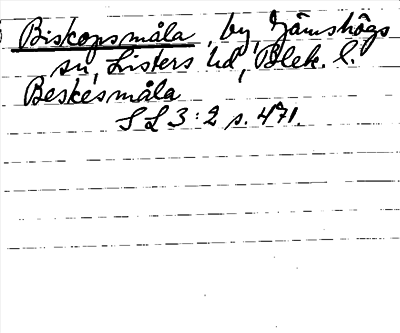 Biskopsmåla, by, Jämshögs
sn, Listers hd, Blek. l.
Beskesmåla
SL 3:2 s. 471.